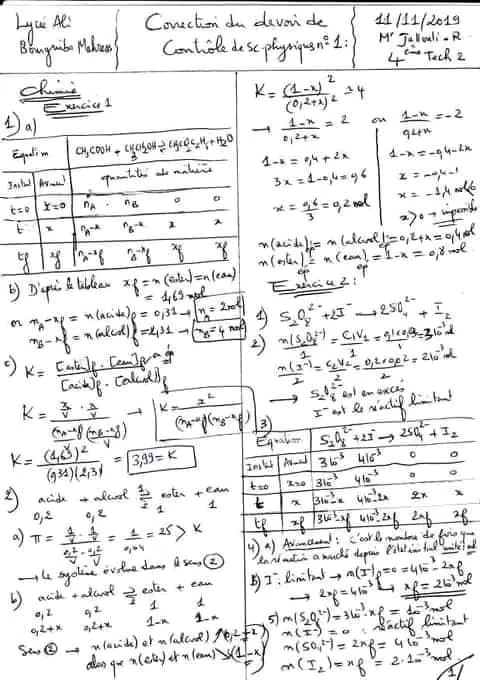 Lycée Ali
Bourguiba Mahress
Correction du devoir de
Contrôle de Sc. physiques n°1:
11/11/2019
Mr Jallouli-R
4ème Tech 2
Chimie
Exercice 1
1) a)
Equation CH3COOH + CH3CH2OH ⇌ CH3CO2C2H5 + H2O
Instant Avancement quantités de matière
t=0 x=0 nA nB 0 0
t x nA-x nB-x x x
tf xf nA-xf nB-xf xf xf
b) D'après le tableau xf = n(ester) = n(eau)
= 1,69 mol
or nA-xf = n(acide)f = 0,31 → nA = 2mol
nB-xf = n(alcool)f = 2,31 → nB = 4mol
c) K = [ester]f . [eau]f
[acide]f . [alcool]f
K = x/V . x/V / (nA-xf)(nB-xf) → K = x² / (nA-xf)(nB-xf)
K = (1,69)² / (0,31)(2,31) = 3,99 = K
2) acide + alcool ⇌ ester + eau
0,2 0,2 1 1
a) π = 1/V . 1/V / 0,2/V . 0,2/V = 1/0,04 = 25 > K
→ Le système évolue dans le sens ②
b) acide + alcool ⇌ ester + eau
0,2 0,2 1 1
0,2+x 0,2+x 1-x 1-x
Sens ② → n(acide) et n(alcool) ↗ (0,2+x)
alors que n(ester) et n(eau) ↘ (1-x)
K = (1-x)² / (0,2+x)² = 4
→ 1-x / 0,2+x = 2 ou 1-x / 0,2+x = -2
1-x = 0,4+2x 1-x = -0,4-2x
3x = 1-0,4 = 0,6 x = -0,4-1
x = 0,6/3 = 0,2 mol x = -1,4 mol
x > 0 → impossible
n(acide)ép = n(alcool)ép = 0,2+x = 0,4 mol
n(ester)ép = n(eau)ép = 1-x = 0,8 mol
Exercice 2:
1) S2O8²⁻ + 2I⁻ → 2SO4²⁻ + I2
2) n(S2O8²⁻)/1 = C1V1/1 = 3 10⁻³ mol
n(I⁻)/2 = C2V2/2 = 2 10⁻³ mol
→ S2O8²⁻ est en excés
I⁻ est le réactif limitant
3)
Equation S2O8²⁻ + 2I⁻ → 2SO4²⁻ + I2
Instant Avanct 3 10⁻³ 4 10⁻³ 0 0
t=0 x=0 3 10⁻³ 4 10⁻³ 0 0
t x 3 10⁻³-x 4 10⁻³-2x 2x x
tf xf 3 10⁻³-xf 4 10⁻³-2xf 2xf xf
4) a) Avancement: c'est le nombre de fois que
la réaction a marché depuis l'état initial
b) I⁻: limitant → n(I⁻)f = 0 = 4 10⁻³ - 2xf
→ 2xf = 4 10⁻³ → xf = 2 10⁻³ mol
5) n(S2O8²⁻) = 3 10⁻³ - xf = 10⁻³ mol
n(I⁻) = 0 : réactif limitant
n(SO4²⁻) = 2xf = 4 10⁻³ mol
n(I2) = xf = 2.10⁻³ mol
1/